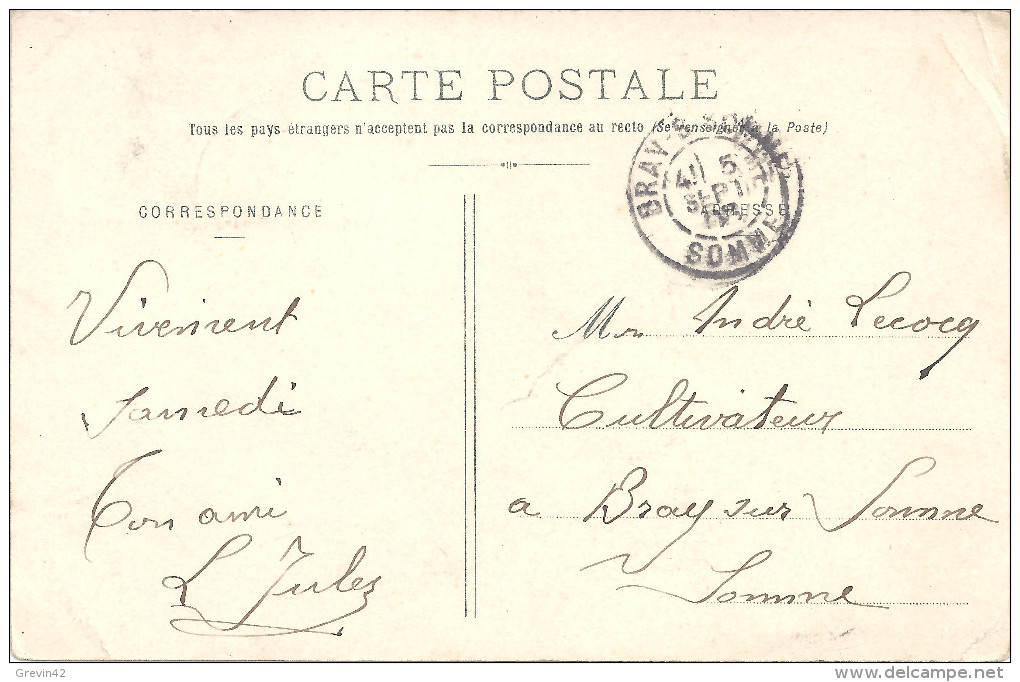 CARTE POSTALE
Tous les pays étrangers n'acceptent pas la correspondance au recto (Se renseigner à la Poste)
BRAY-S-SOMME
5
SEPT
SOMME
CORRESPONDANCE
ADRESSE
Vivement
samedi
Ton ami
L Jules
Mr André Lecocq
Cultivateur
a Bray sur Somme
Somme
Grevin42
www.delcampe.net